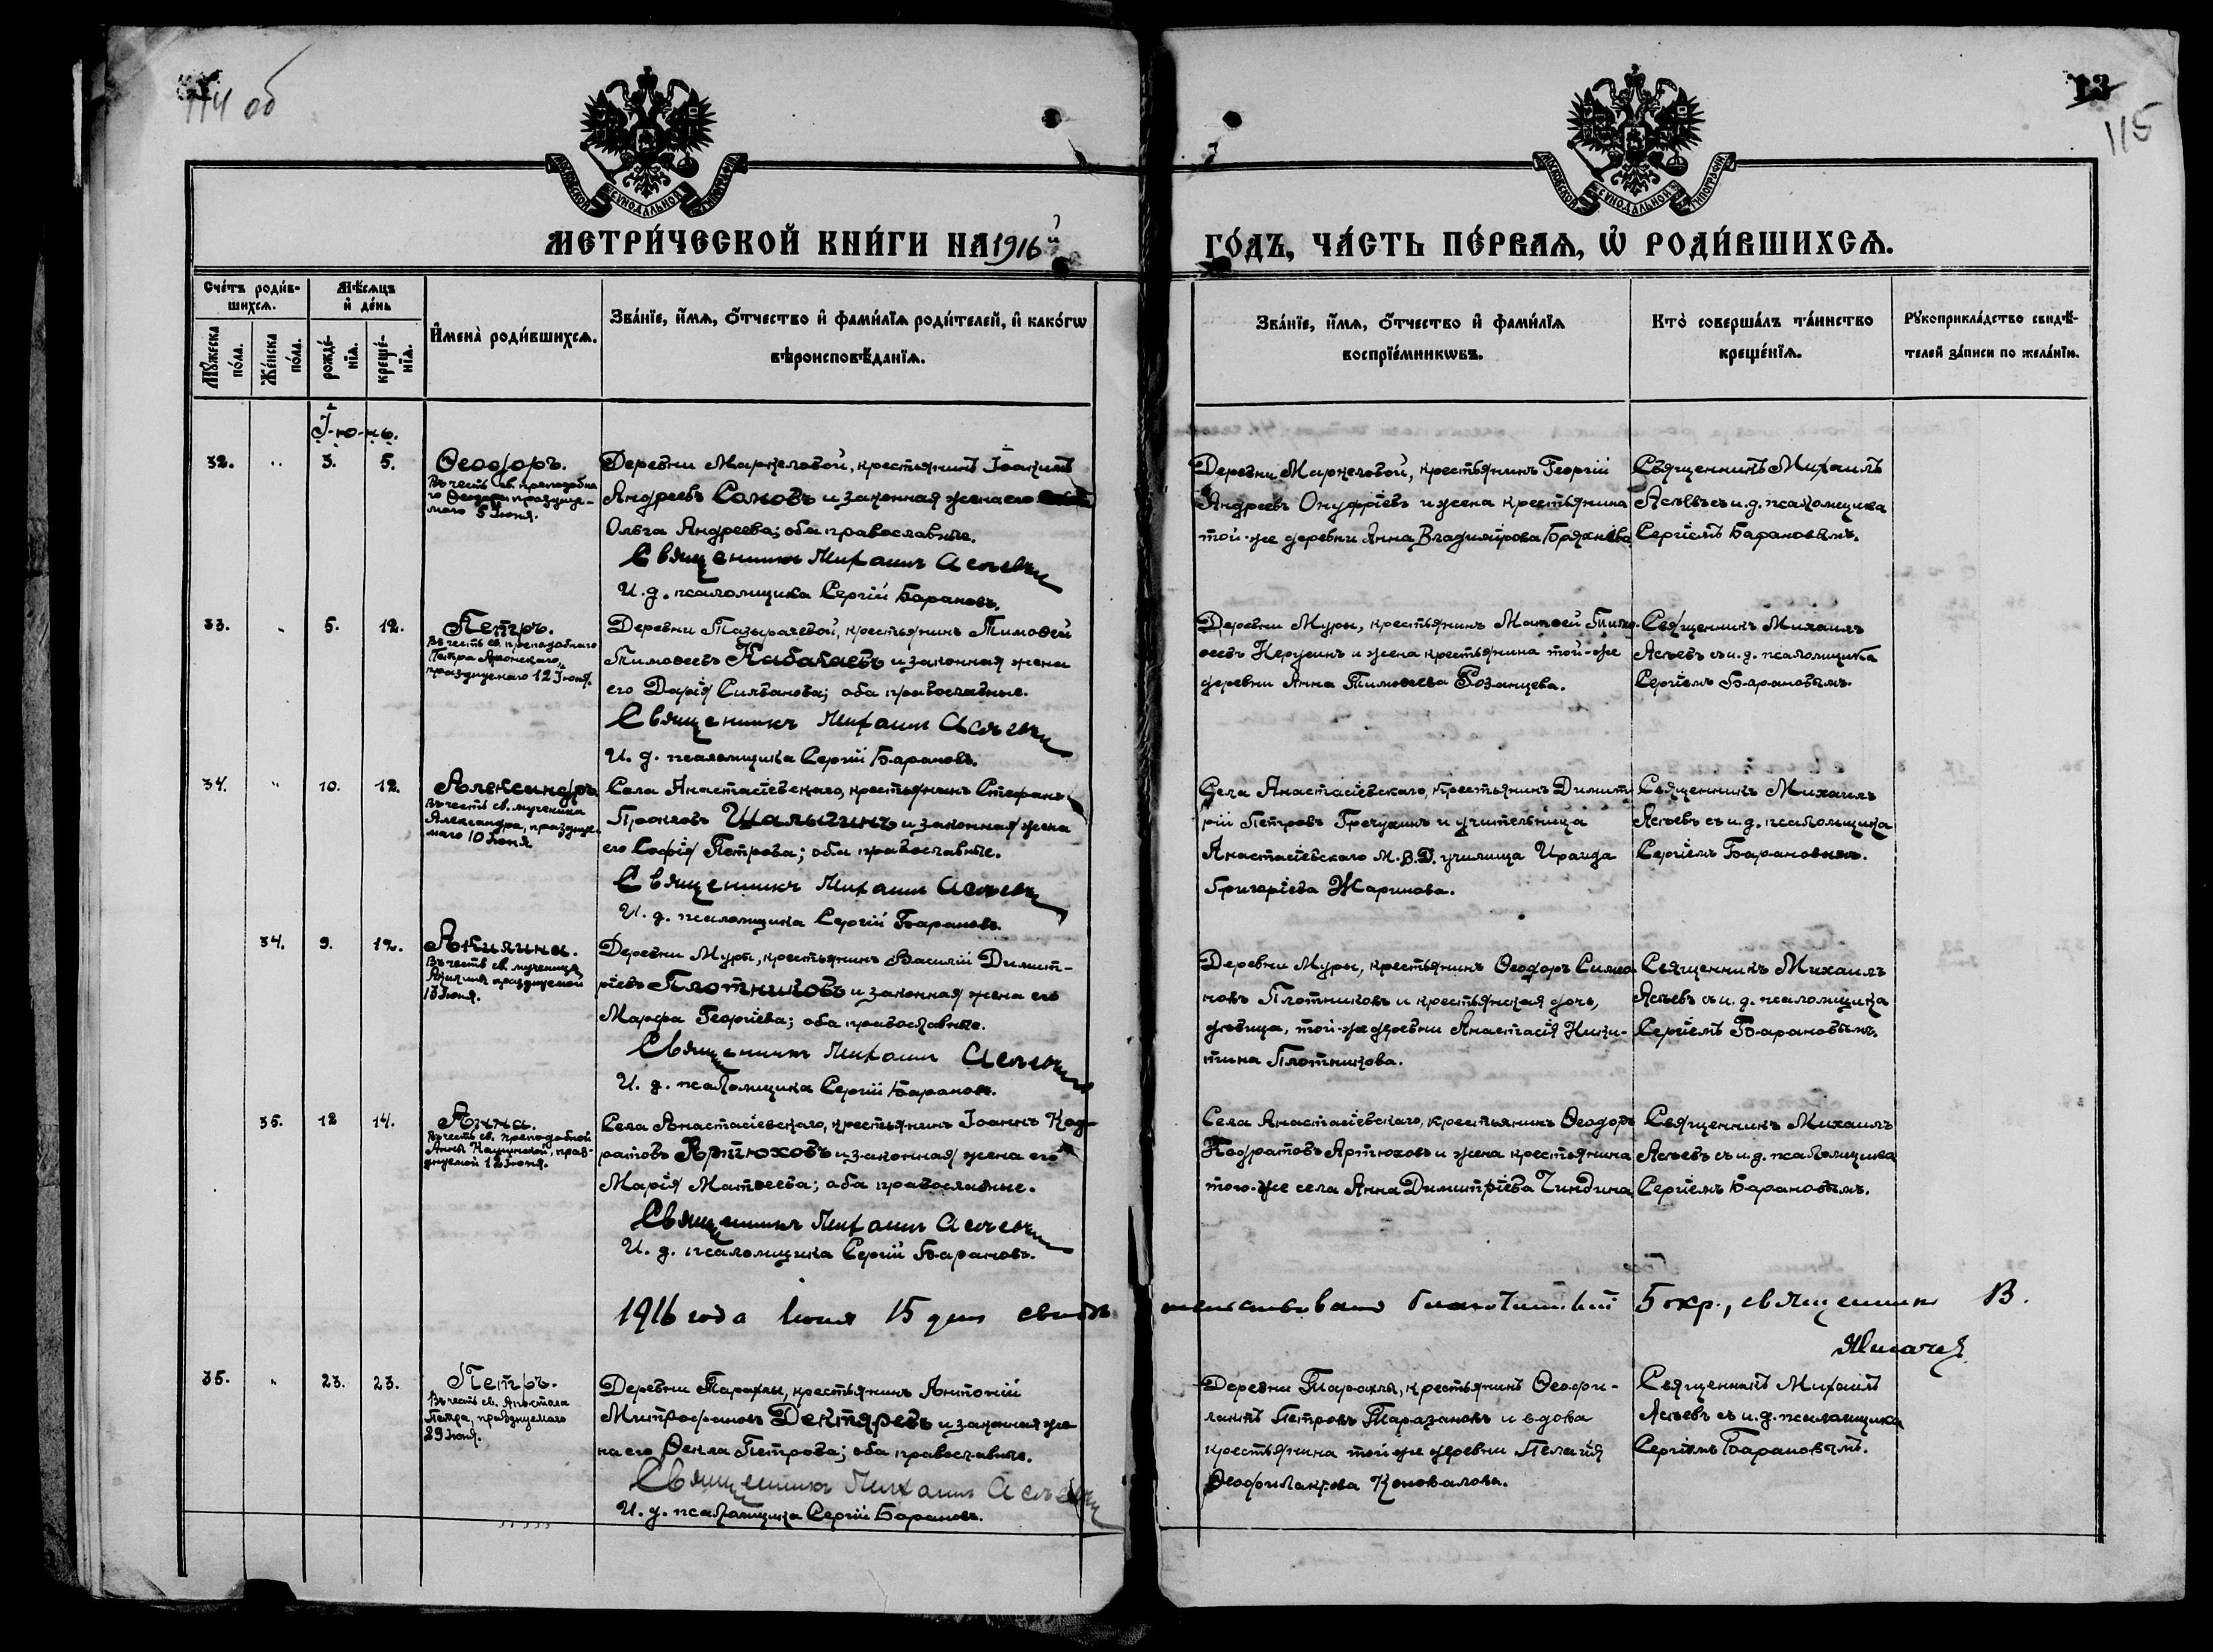 114 об
13
115
МОСКОВСКОЙ СѴНОДАЛЬНОЙ ТИПОГРАФІИ
МОСКОВСКОЙ СѴНОДАЛЬНОЙ ТИПОГРАФІИ
МЕТРИ́ЧЕСКОЙ КНИ́ГИ НА 1916й
ГО́ДЪ, ЧА́СТЬ ПЕ́РВАѦ, Ѡ҆ РОДИ́ВШИХСѦ.
Сче́тъ роди́в-
шихсѧ.
Мꙋ́жеска по́ла.
Же́нска по́ла.
Мѣ́сѧцъ
и҆ де́нь
рожде́-
нїѧ.
креще́-
нїѧ.
И҆мена̀ роди́вшихсѧ.
Зва́нїе, и҆́мѧ, ѻ҆́тчество и҆ фами́лїѧ роди́телей, и҆ како́гѡ
вѣроисповѣ́данїѧ.
Зва́нїе, и҆́мѧ, ѻ҆́тчество и҆ фами́лїѧ
воспрїе́мникѡвъ.
Кто̀ соверша́лъ та́инство
креще́нїѧ.
Рꙋкоприкла́дство свидѣ́-
телей за́писи по жела́нїю.
І-ю-нь.
32. " 3. 5.
Ѳеодоръ.
Въ честь св. преподобна
го Ѳеодора празднуе-
маго 5 Іюня.
Деревни Маркеловой, крестьянинъ Іоакимъ
Андреевъ Сомовъ и законная жена его
Ольга Андреева; оба православные.
Священникъ Михаилъ Асѣевъ
И. д. псаломщика Сергій Барановъ.
Деревни Маркеловой, крестьянинъ Георгій
Андреевъ Онуфріевъ и жена крестьянина
той-же деревни Анна Владимірова Бряхнева
Священникъ Михаилъ
Асѣевъ съ и. д. псаломщика
Сергіемъ Барановымъ.
33. " 5. 12.
Петръ.
Въ честь св. преподобнаго
Петра Аѳонскаго,
празднуемаго 12 Іюня.
Деревни Тазырачевой, крестьянинъ Тимоѳей
Тимоѳеевъ Кабакаевъ и законная жена
его Дарія Сильванова; оба православные.
Священникъ Михаилъ Асѣевъ
И. д. псаломщика Сергій Барановъ.
Деревни Муры, крестьянинъ Матѳей Тимо-
ѳеевъ и жена крестьянина той-же
деревни Анна Тимоѳеева Розанцева.
Священникъ Михаилъ
Асѣевъ съ и. д. псаломщика
Сергіемъ Барановымъ.
34. " 10. 12.
Александръ
Въ честь св. мученика
Александра, празднуе-
маго 10 Іюня
Села Анастасіевскаго, крестьянинъ Стефанъ
Прокловъ Шалыгинъ и законная жена
его Софія Петрова; оба православные.
Священникъ Михаилъ Асѣевъ
И. д. псаломщика Сергій Барановъ.
Села Анастасіевскаго, крестьянинъ Димит
рій Петровъ Гречухинъ и учительница
Анастасіевскаго М. В. Д. училища Ираида
Григоріева Жаринова.
Священникъ Михаилъ
Асѣевъ съ и. д. псаломщика
Сергіемъ Барановымъ.
34. 9. 12.
Акилина.
Въ честь св. мученицы
Акилины празднуемой
13 Іюня.
Деревни Муры, крестьянинъ Василій Димит-
ріевъ Плотниковъ и законная жена его
Марѳа Георгіева; оба православные.
Священникъ Михаилъ Асѣевъ
И. д. псаломщика Сергій Барановъ.
Деревни Муры, крестьянинъ Ѳеодоръ Симео
новъ Плотниковъ и крестьянская дочь,
дѣвица, той-же деревни Анастасія Ники-
тина Плотникова.
Священникъ Михаилъ
Асѣевъ съ и. д. псаломщика
Сергіемъ Барановымъ.
35. 12 14.
Анна.
Въ честь св. преподобной
Анны Кашинской, праз-
днуемой 12 Іюня.
Села Анастасіевскаго, крестьянинъ Іоаннъ Код-
ратовъ Артюховъ и законная жена его
Марія Матѳеева; оба православные.
Священникъ Михаилъ Асѣевъ
И. д. псаломщика Сергій Барановъ.
Села Анастасіевскаго, крестьянинъ Ѳеодоръ
Кодратовъ Артюховъ и жена крестьянина
того-же села Анна Димитріева Чиндина
Священникъ Михаилъ
Асѣевъ съ и. д. псаломщика
Сергіемъ Барановымъ.
1916 года Іюня 15 дня свидѣтельствовалъ благочинный 5 окр., священникъ В.
35. " 23. 23.
Петръ.
Въ честь св. Апостола
Петра, празднуемаго
29 Іюня.
Деревни Тарахлы, крестьянинъ Антоній
Митрофановъ Дектяревъ и законная же-
на его Ѳекла Петрова; оба православные.
Священникъ Михаилъ Асѣевъ
И. д. псаломщика Сергій Барановъ.
Деревни Тарахлы, крестьянинъ Ѳеофи-
лактъ Петровъ Таразановъ и вдова
крестьянина той же деревни Пелагія
Ѳеофилактова Коновалова.
Священникъ Михаилъ
Асѣевъ съ и. д. псаломщика
Сергіемъ Барановымъ.